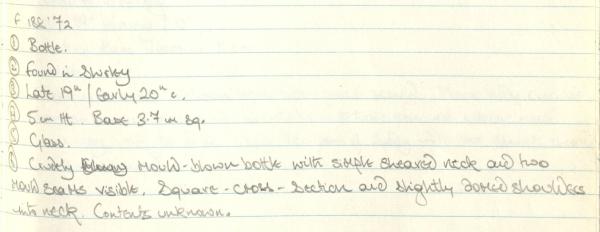 F 188'72
① Bottle.
② Found in Shirley
③ Late 19th / Early 20th c.
④ 5 cm Ht. Base 3.7 cm sq.
⑤ Glass.
⑥ Crudely mould-blown bottle with simple sheared neck and two
mould seams visible. Square-cross-section and slightly domed shoulders
into neck. Contents unknown.